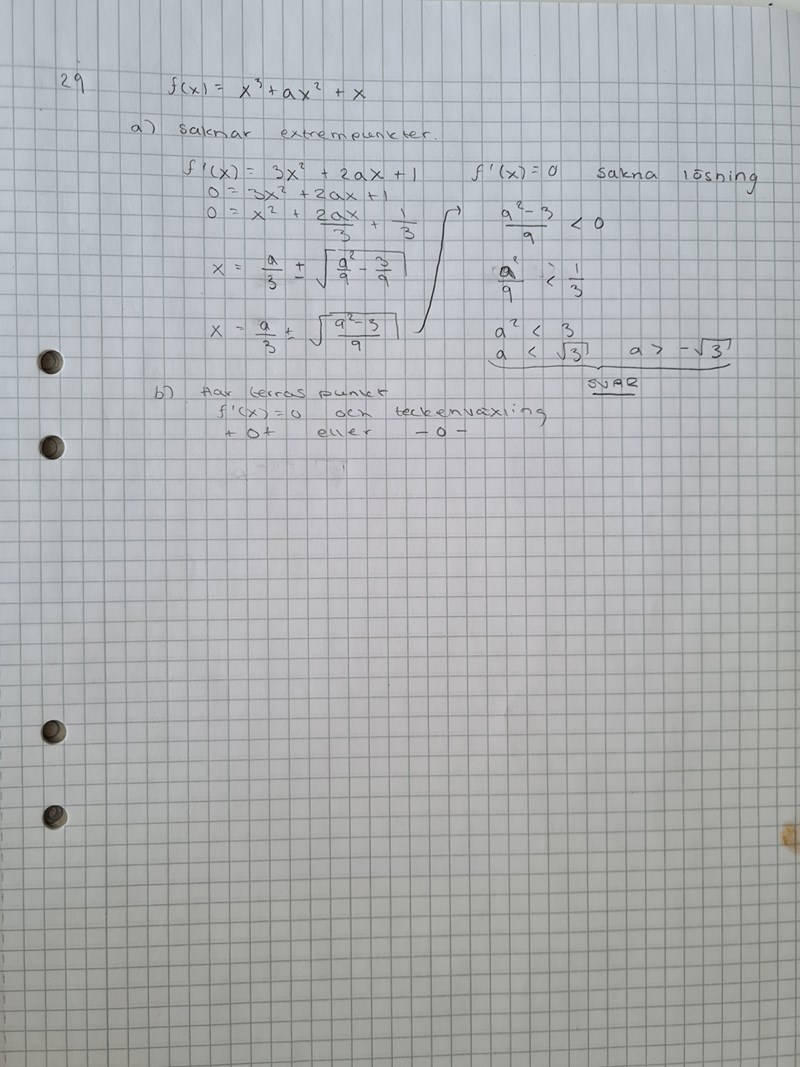 29
f(x) = x³ + ax² + x
a) saknar extrempunkter.
f'(x) = 3x² + 2ax + 1
0 = 3x² + 2ax + 1
0 = x² + 2ax/3 + 1/3
x = a/3 ± √(a²/9 - 3/9)
x = a/3 ± √((a²-3)/9)
f'(x) = 0 sakna lösning
(a²-3)/9 < 0
a²/9 < 1/3
a² < 3
a < √3 a > -√3
SVAR
b) Har terras punkt
f'(x) = 0 och teckenväxling
+ 0 + eller - 0 -